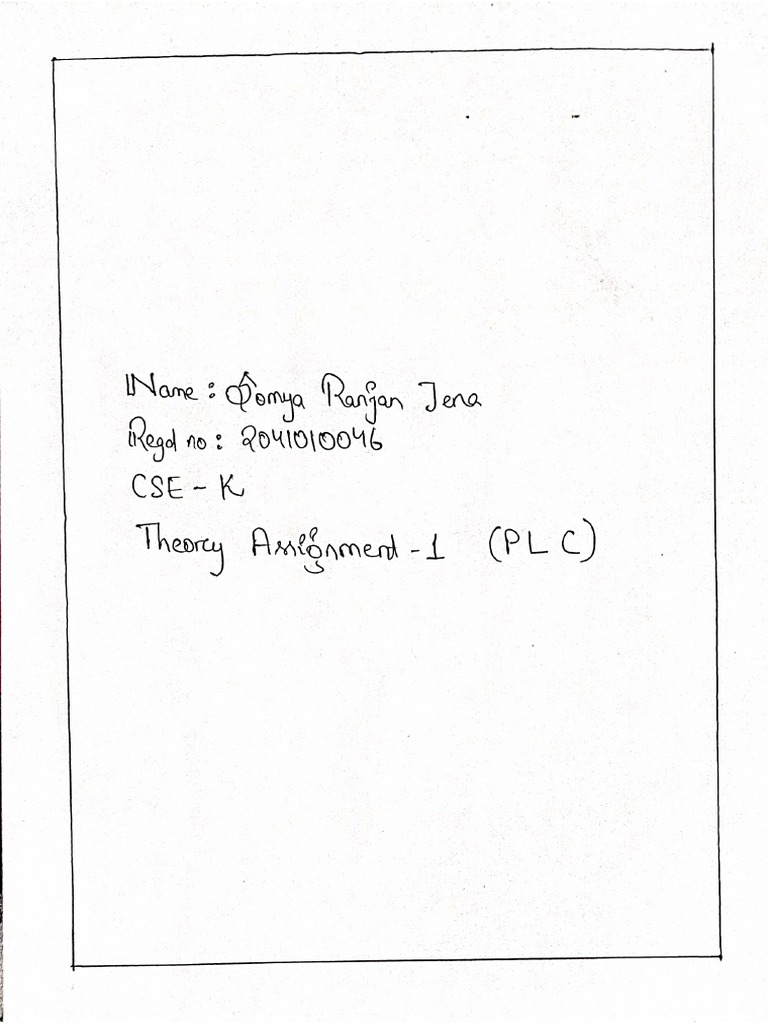 Name : Somya Ranjan Jena
Regd no : 2041010046
CSE - K
Theory Assignment - 1 (PLC)